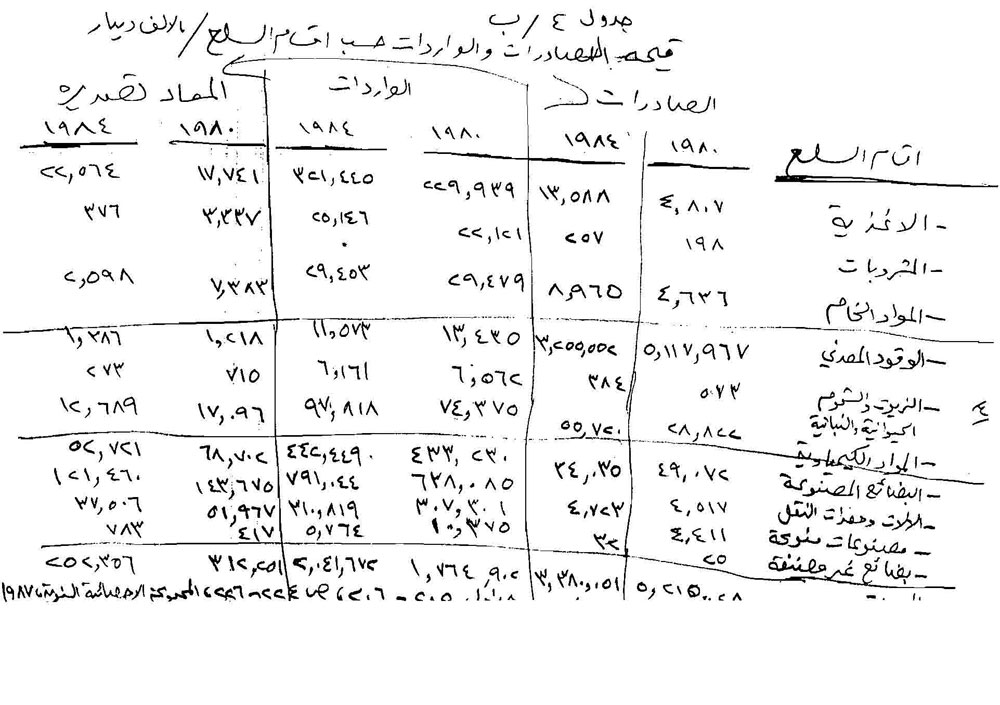 جدول ٤/ب
قيمة الصادرات والواردات حسب اقسام السلع/بالالف دينار
الصادرات الواردات المعاد تصديره
اقسام السلع ١٩٨٠ ١٩٨٤ ١٩٨٠ ١٩٨٤ ١٩٨٠ ١٩٨٤
- الاغذية ٤,٨٠٧ ١٣,٥٨٨ ٢٢٩,٩٣٩ ٣٢١,٤٤٥ ١٧,٧٤١ ٢٢,٥٦٤
- المشروبات ١٩٨ ٢٥٧ ٢٢,١٢١ ٢٥,١٤٦ ٣,٣٣٧ ٣٧٦
- المواد الخام ٤,٦٣٦ ٨,٩٦٥ ٢٩,٤٧٩ ٢٩,٤٥٣ ٧,٣٨٣ ٢,٥٩٨
- الوقود المعدني ٥,١١٧,٩٦٧ ٣,٢٥٥,٥٥٢ ١٣,٤٣٥ ١١,٥٧٣ ١,٢١٨ ١,٣٨٦
- الزيوت والشحوم ٥٧٣ ٣٨٤ ٦,٥٦٢ ٦,١٦١ ٧١٥ ٢٧٣
الحيوانية والنباتية
- المواد الكيمياوية ٢٨,٨٢٢ ٥٥,٧٢٠ ٧٤,٣٧٥ ٩٧,٨١٨ ١٧,٠٩٦ ١٢,٦٨٩
- البضائع المصنوعة ٤٩,٠٧٢ ٣٤,٠٣٥ ٤٣٣,٢٣٠ ٤٤٢,٤٤٩ ٦٨,٧٠٢ ٥٢,٧٢١
- الالات ومعدات النقل ٤,٥١٧ ٤,٧٢٣ ٦٢٨,٠٨٥ ٧٩١,٠٤٤ ١٤٣,٦٧٥ ١٢١,٤٦٠
- مصنوعات منوعة ٤,٤١١ ٣٢ ٣٠٧,٣٠١ ٣١٠,٨١٩ ٥١,٩٦٧ ٣٧,٥٠٦
- بضائع غير مصنفة ٢٥ ١٠,٣٧٥ ٥,٧٦٤ ٤١٧ ٧٨٣
٥,٢١٥,٠٢٨ ٣,٣٨٠,٠٥١ ١,٧٦٤,٩٠٢ ٢,٠٤١,٦٧٢ ٣١٢,٢٥١ ٢٥٢,٣٥٦
٢٠٥ - ٢٠٦، ص ٢٢٤ - ٢٢٦، المجموعة الاحصائية السنوية ١٩٨٧
٤